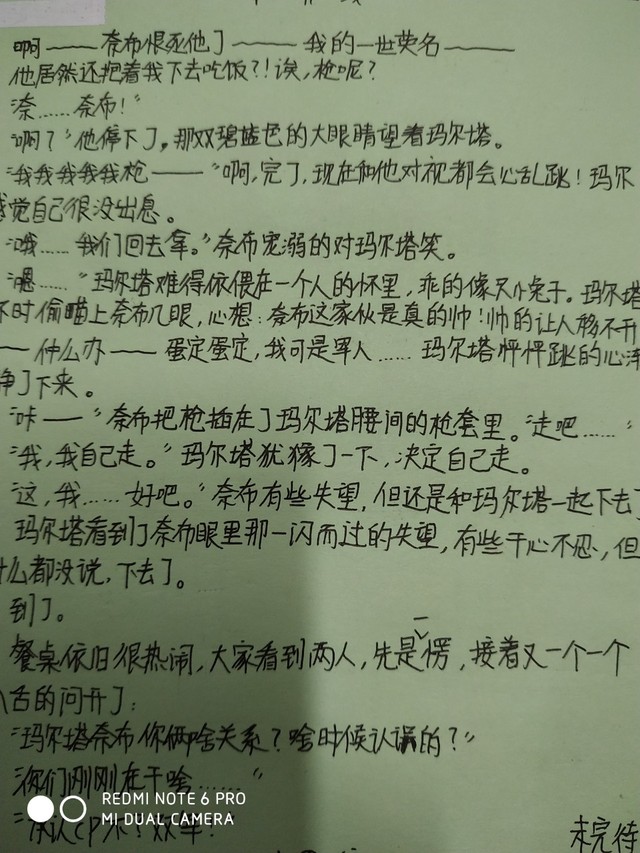 啊——奈布恨死他了——我的一世英名——
他居然还抱着我下去吃饭?!诶,枪呢?
“奈……奈布!”
“啊?”他停下了,那双碧蓝色的大眼睛望着玛尔塔。
“我我我我我枪——”啊,完了,现在和他对视都会心乱跳!玛尔
觉自己很没出息。
“哦……我们回去拿。”奈布宠溺的对玛尔塔笑。
“嗯……”玛尔塔难得依偎在一个人的怀里,乖的像只小兔子。玛尔塔
不时偷瞄上奈布几眼,心想:奈布这家伙是真的帅!帅的让人移不开
——什么办——蛋定蛋定,我可是军人……玛尔塔怦怦跳的心
静了下来。
“咔——”奈布把枪插在了玛尔塔腰间的枪套里。“走吧……”
“我,我自己走。”玛尔塔犹豫了一下,决定自己走。
“这,我……好吧。”奈布有些失望,但还是和玛尔塔一起下去了
玛尔塔看到了奈布眼里那一闪而过的失望,有些于心不忍,但
什么都没说,下去了。
到了。
餐桌依旧很热闹,大家看到两人,先是一愣,接着又一个一个
八舌的问开了:
“玛尔塔奈布你俩啥关系?啥时候认识的?”
“你们刚刚在干啥……”
CP不?
未完待
REDMI NOTE 6 PRO
MI DUAL CAMERA